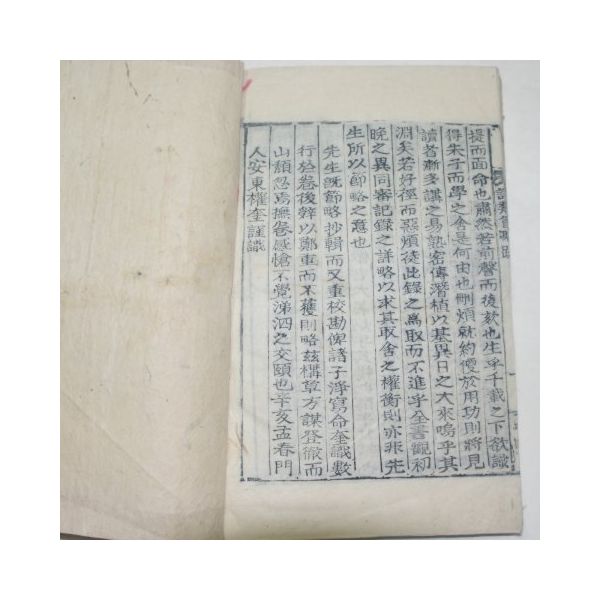 提而面命也肅然若前聲而後欬也生乎千載之下欲識
得朱子而學之舍是何由也刪煩就約便於用功則將見
讀者漸多講之易熟密傳潛植以基異日之大來嗚乎其
淵矣若好徑而惡煩徒此錄之爲取而不進乎全書觀初
晚之異同審記錄之詳略以求其取舍之權衡則亦非先
生所以節略之意也
先生旣節略抄輯而又重校勘俾諸子淨寫命奎識數
行於卷後辭以鄭重而不獲則略玆構草方謀登徹而
山頹忽焉撫卷感愴不覺涕泗之交頤也辛亥孟春門
人安東權奎謹識